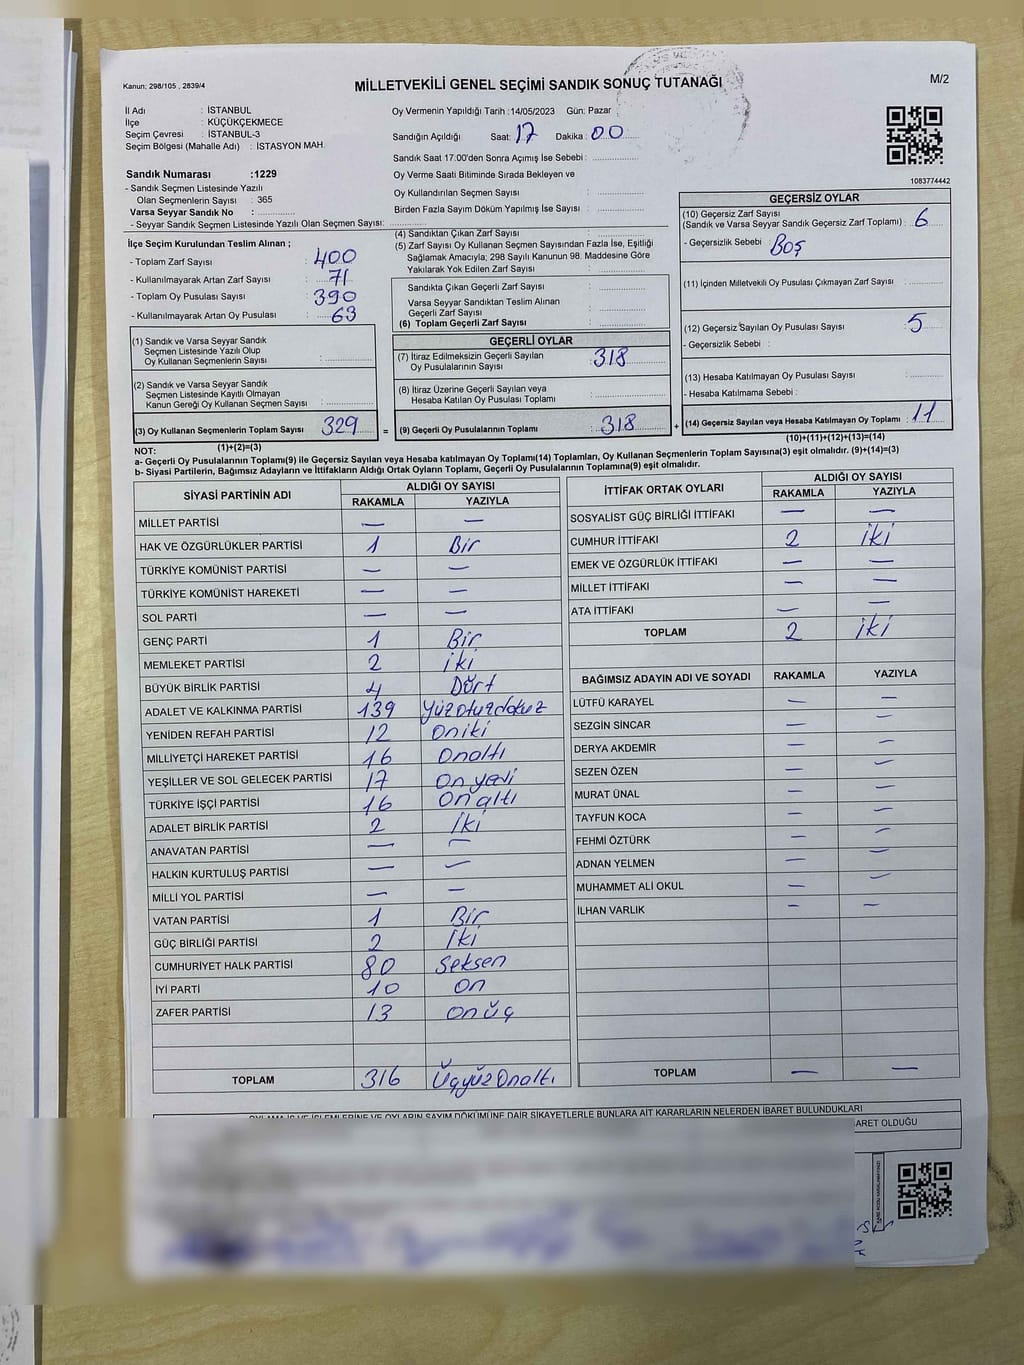 Kanun: 298/105 , 2839/4
MİLLETVEKİLİ GENEL SEÇİMİ SANDIK SONUÇ TUTANAĞI
M/2
İl Adı : İSTANBUL
İlçe : KÜÇÜKÇEKMECE
Seçim Çevresi : İSTANBUL-3
Seçim Bölgesi (Mahalle Adı) : İSTASYON MAH.
Sandık Numarası :1229
- Sandık Seçmen Listesinde Yazılı
Olan Seçmenlerin Sayısı : 365
Varsa Seyyar Sandık No :
- Seyyar Sandık Seçmen Listesinde Yazılı Olan Seçmen Sayısı:
Oy Vermenin Yapıldığı Tarih :14/05/2023 Gün: Pazar
Sandığın Açıldığı Saat: 17 Dakika: 00
Sandık Saat 17:00'den Sonra Açımış İse Sebebi :
Oy Verme Saati Bitiminde Sırada Bekleyen ve
Oy Kullandırılan Seçmen Sayısı :
Birden Fazla Sayım Döküm Yapılmış İse Sayısı :
1083774442
İlçe Seçim Kurulundan Teslim Alınan ;
- Toplam Zarf Sayısı : 400
- Kullanılmayarak Artan Zarf Sayısı : 71
- Toplam Oy Pusulası Sayısı : 390
- Kullanılmayarak Artan Oy Pusulası : 63
(1) Sandık ve Varsa Seyyar Sandık
Seçmen Listesinde Yazılı Olup
Oy Kullanan Seçmenlerin Sayısı :
(2) Sandık ve Varsa Seyyar Sandık
Seçmen Listesinde Kayıtlı Olmayan
Kanun Gereği Oy Kullanan Seçmen Sayısı :
(3) Oy Kullanan Seçmenlerin Toplam Sayısı : 329
(1)+(2)=(3)
(4) Sandıktan Çıkan Zarf Sayısı :
(5) Zarf Sayısı Oy Kullanan Seçmen Sayısından Fazla İse, Eşitliği
Sağlamak Amacıyla; 298 Sayılı Kanunun 98. Maddesine Göre
Yakılarak Yok Edilen Zarf Sayısı :
Sandıkta Çıkan Geçerli Zarf Sayısı :
Varsa Seyyar Sandıktan Teslim Alınan
Geçerli Zarf Sayısı :
(6) Toplam Geçerli Zarf Sayısı :
GEÇERLİ OYLAR
(7) İtiraz Edilmeksizin Geçerli Sayılan
Oy Pusulalarının Sayısı : 318
(8) İtiraz Üzerine Geçerli Sayılan veya
Hesaba Katılan Oy Pusulası Toplamı :
= (9) Geçerli Oy Pusulalarının Toplamı : 318 +
GEÇERSİZ OYLAR
(10) Geçersiz Zarf Sayısı
(Sandık ve Varsa Seyyar Sandık Geçersiz Zarf Toplamı) : 6
- Geçersizlik Sebebi : Boş
(11) İçinden Milletvekili Oy Pusulası Çıkmayan Zarf Sayısı :
(12) Geçersiz Sayılan Oy Pusulası Sayısı : 5
- Geçersizlik Sebebi :
(13) Hesaba Katılmayan Oy Pusulası Sayısı :
- Hesaba Katılmama Sebebi :
(14) Geçersiz Sayılan veya Hesaba Katılmayan Oy Toplamı : 11
(10)+(11)+(12)+(13)=(14)
NOT:
a- Geçerli Oy Pusulalarının Toplamı(9) ile Geçersiz Sayılan veya Hesaba katılmayan Oy Toplamı(14) Toplamları, Oy Kullanan Seçmenlerin Toplam Sayısına(3) eşit olmalıdır. (9)+(14)=(3)
b- Siyasi Partilerin, Bağımsız Adayların ve İttifakların Aldığı Ortak Oyların Toplamı, Geçerli Oy Pusulalarının Toplamına(9) eşit olmalıdır.
SİYASİ PARTİNİN ADI ALDIĞI OY SAYISI
RAKAMLA YAZIYLA
MİLLET PARTİSİ — —
HAK VE ÖZGÜRLÜKLER PARTİSİ 1 Bir
TÜRKİYE KOMÜNİST PARTİSİ — —
TÜRKİYE KOMÜNİST HAREKETİ — —
SOL PARTİ — —
GENÇ PARTİ 1 Bir
MEMLEKET PARTİSİ 2 iki
BÜYÜK BİRLİK PARTİSİ 4 Dört
ADALET VE KALKINMA PARTİSİ 139 Yüzotuzdokuz
YENİDEN REFAH PARTİSİ 12 oniki
MİLLİYETÇİ HAREKET PARTİSİ 16 Onaltı
YEŞİLLER VE SOL GELECEK PARTİSİ 17 On yedi
TÜRKİYE İŞÇİ PARTİSİ 16 On altı
ADALET BİRLİK PARTİSİ 2 İki
ANAVATAN PARTİSİ — —
HALKIN KURTULUŞ PARTİSİ — —
MİLLİ YOL PARTİSİ — —
VATAN PARTİSİ 1 Bir
GÜÇ BİRLİĞİ PARTİSİ 2 İki
CUMHURİYET HALK PARTİSİ 80 Seksen
İYİ PARTİ 10 on
ZAFER PARTİSİ 13 onüç
TOPLAM 316 ÜçyüzOnaltı
İTTİFAK ORTAK OYLARI ALDIĞI OY SAYISI
RAKAMLA YAZIYLA
SOSYALİST GÜÇ BİRLİĞİ İTTİFAKI — —
CUMHUR İTTİFAKI 2 iki
EMEK VE ÖZGÜRLÜK İTTİFAKI — —
MİLLET İTTİFAKI — —
ATA İTTİFAKI — —
TOPLAM 2 iki
BAĞIMSIZ ADAYIN ADI VE SOYADI RAKAMLA YAZIYLA
LÜTFÜ KARAYEL — —
SEZGİN SİNCAR — —
DERYA AKDEMİR — —
SEZEN ÖZEN — —
MURAT ÜNAL — —
TAYFUN KOCA — —
FEHMİ ÖZTÜRK — —
ADNAN YELMEN — —
MUHAMMET ALİ OKUL — —
İLHAN VARLIK — —
TOPLAM — —
OYLAMA İŞ VE İŞLEMLERİNE VE OYLARIN SAYIM DÖKÜMÜNE DAİR ŞİKAYETLERLE BUNLARA AİT KARARLARIN NELERDEN İBARET BULUNDUKLARI
ARET OLDUĞU